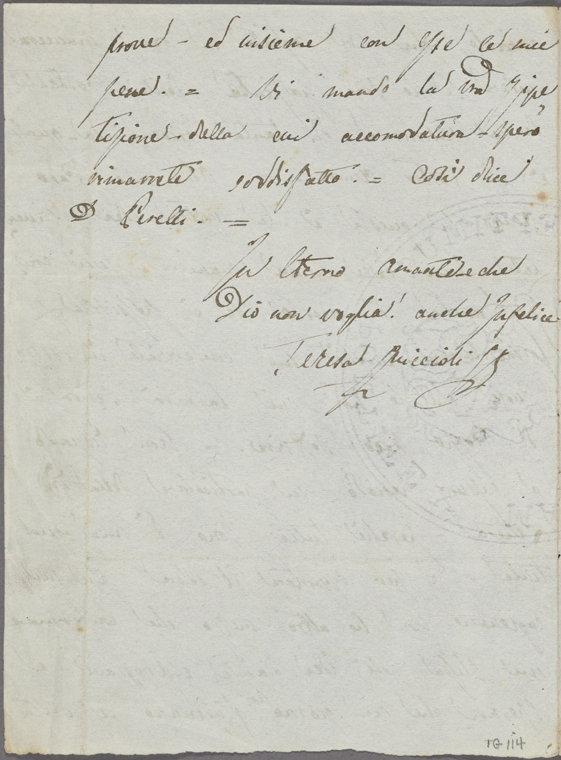 prove - ed insieme con esse le mie
pene. = Vi mando la vra Ripe
tizione - della cui accomodatura - spero
rimarrete soddisfatto. = Così dice
Perelli. =
In Eterno amante e che
Dio non voglia! anche Infelice
Teresa Guiccioli
IG 114